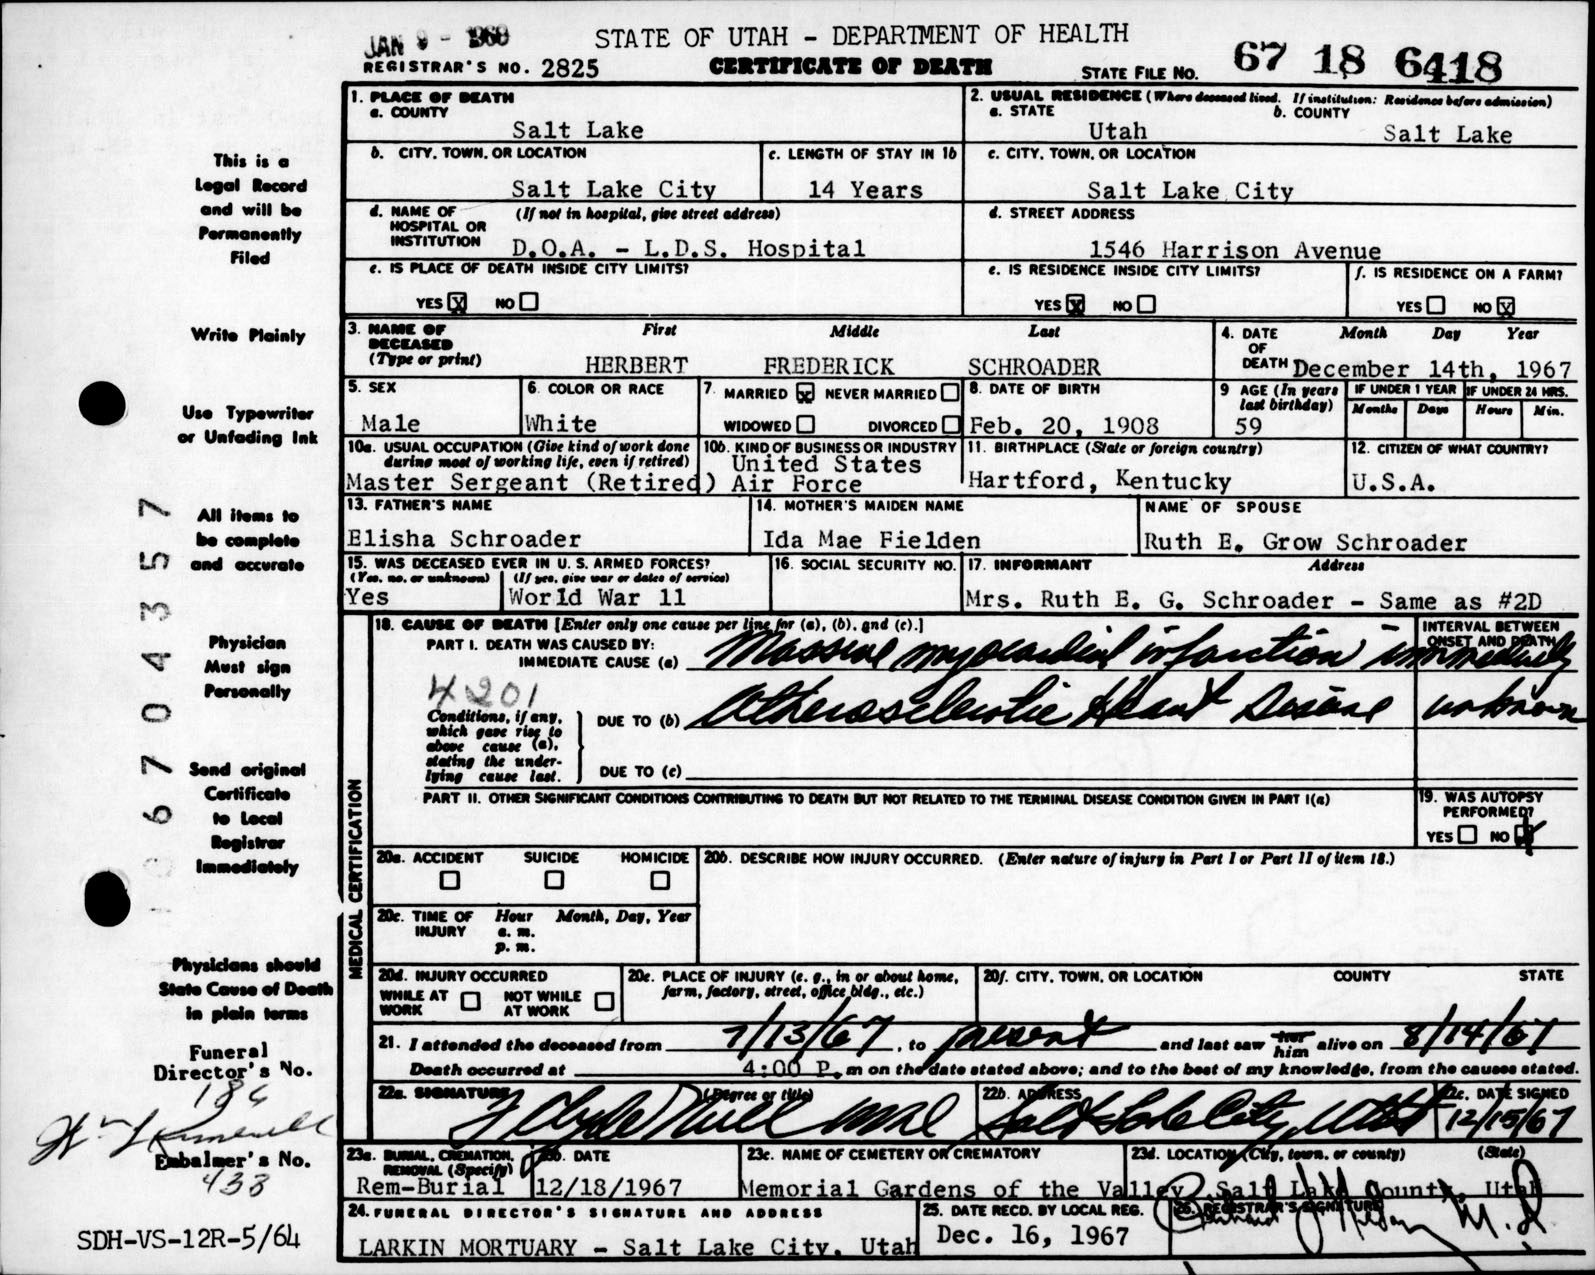 JAN 9 - 1968
STATE OF UTAH - DEPARTMENT OF HEALTH
REGISTRAR'S NO. 2825
CERTIFICATE OF DEATH
STATE FILE NO. 67 18 6418
This is a
Legal Record
and will be
Permanently
Filed
Write Plainly
Use Typewriter
or Unfading Ink
All items to
be complete
and accurate
Physician
Must sign
Personally
Send original
Certificate
to Local
Registrar
Immediately
Physicians should
State Cause of Death
in plain terms
Funeral
Director's No.
186
Embalmer's No.
433
SDH-VS-12R-5/64
6704357
1. PLACE OF DEATH
a. COUNTY
Salt Lake
2. USUAL RESIDENCE (Where deceased lived. If institution: Residence before admission)
a. STATE
Utah
b. COUNTY
Salt Lake
b. CITY, TOWN, OR LOCATION
Salt Lake City
c. LENGTH OF STAY IN 1b
14 Years
c. CITY, TOWN, OR LOCATION
Salt Lake City
d. NAME OF HOSPITAL OR INSTITUTION
(If not in hospital, give street address)
D.O.A. - L.D.S. Hospital
d. STREET ADDRESS
1546 Harrison Avenue
e. IS PLACE OF DEATH INSIDE CITY LIMITS?
YES X NO
e. IS RESIDENCE INSIDE CITY LIMITS?
YES X NO
f. IS RESIDENCE ON A FARM?
YES NO X
3. NAME OF DECEASED
(Type or print)
First Middle Last
HERBERT FREDERICK SCHROADER
4. DATE OF DEATH
Month Day Year
December 14th, 1967
5. SEX
Male
6. COLOR OR RACE
White
7. MARRIED X NEVER MARRIED
WIDOWED DIVORCED
8. DATE OF BIRTH
Feb. 20, 1908
9 AGE (In years last birthday)
59
IF UNDER 1 YEAR
Months Days
IF UNDER 24 HRS.
Hours Min.
10a. USUAL OCCUPATION (Give kind of work done during most of working life, even if retired)
Master Sergeant (Retired)
10b. KIND OF BUSINESS OR INDUSTRY
United States
Air Force
11. BIRTHPLACE (State or foreign country)
Hartford, Kentucky
12. CITIZEN OF WHAT COUNTRY?
U.S.A.
13. FATHER'S NAME
Elisha Schroader
14. MOTHER'S MAIDEN NAME
Ida Mae Fielden
NAME OF SPOUSE
Ruth E. Grow Schroader
15. WAS DECEASED EVER IN U. S. ARMED FORCES?
(Yes, no, or unknown) (If yes, give war or dates of service)
Yes World War 11
16. SOCIAL SECURITY NO.
17. INFORMANT Address
Mrs. Ruth E. G. Schroader - Same as #2D
MEDICAL CERTIFICATION
18. CAUSE OF DEATH [Enter only one cause per line for (a), (b), and (c).]
PART I. DEATH WAS CAUSED BY:
IMMEDIATE CAUSE (a) Massive myocardial infarction
INTERVAL BETWEEN ONSET AND DEATH
immediately
4201
Conditions, if any, which gave rise to above cause (a), stating the underlying cause last.
DUE TO (b) Atherosclerotic Heart Disease unknown
DUE TO (c)
PART II. OTHER SIGNIFICANT CONDITIONS CONTRIBUTING TO DEATH BUT NOT RELATED TO THE TERMINAL DISEASE CONDITION GIVEN IN PART I(a)
19. WAS AUTOPSY PERFORMED?
YES NO X
20a. ACCIDENT SUICIDE HOMICIDE
20b. DESCRIBE HOW INJURY OCCURRED. (Enter nature of injury in Part I or Part II of item 18.)
20c. TIME OF INJURY
Hour Month, Day, Year
a. m.
p. m.
20d. INJURY OCCURRED
WHILE AT WORK NOT WHILE AT WORK
20e. PLACE OF INJURY (e. g., in or about home, farm, factory, street, office bldg., etc.)
20f. CITY, TOWN, OR LOCATION COUNTY STATE
21. I attended the deceased from 7/13/67, to present and last saw her him alive on 8/14/67
Death occurred at 4:00 P. m on the date stated above; and to the best of my knowledge, from the causes stated.
22a. SIGNATURE (Degree or title)
22b. ADDRESS
Salt Lake City, Utah
22c. DATE SIGNED
12/15/67
23a. BURIAL, CREMATION, REMOVAL (Specify)
Rem-Burial
23b. DATE
12/18/1967
23c. NAME OF CEMETERY OR CREMATORY
Memorial Gardens of the Valley
23d. LOCATION (City, town, or county) (State)
Salt Lake County, Utah
24. FUNERAL DIRECTOR'S SIGNATURE AND ADDRESS
LARKIN MORTUARY - Salt Lake City, Utah
25. DATE RECD. BY LOCAL REG.
Dec. 16, 1967
26. REGISTRAR'S SIGNATURE